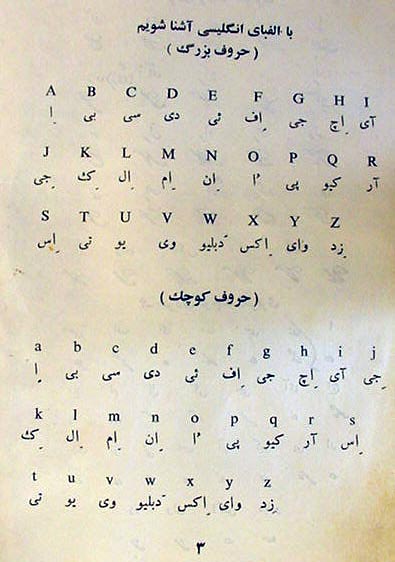 با الفبای انگلیسی آشنا شویم
( حروف بزرگ )
A B C D E F G H I
آی اِچ جی اِف ئی دی سی بی اِ
J K L M N O P Q R
آر کیو پی اُ اِن اِم اِل کِ جِی
S T U V W X Y Z
زِد وای اِکس دَبلیو وی یو تی اِس
( حروف کوچك )
a b c d e f g h i j
جِی آی اِچ جی اِف ئی دی سی بی اِ
k l m n o p q r s
اِس آر کیو پی اُ اِن اِم اِل کِ
t u v w x y z
زِد وای اِکس دَبلیو وی یو تی
۳